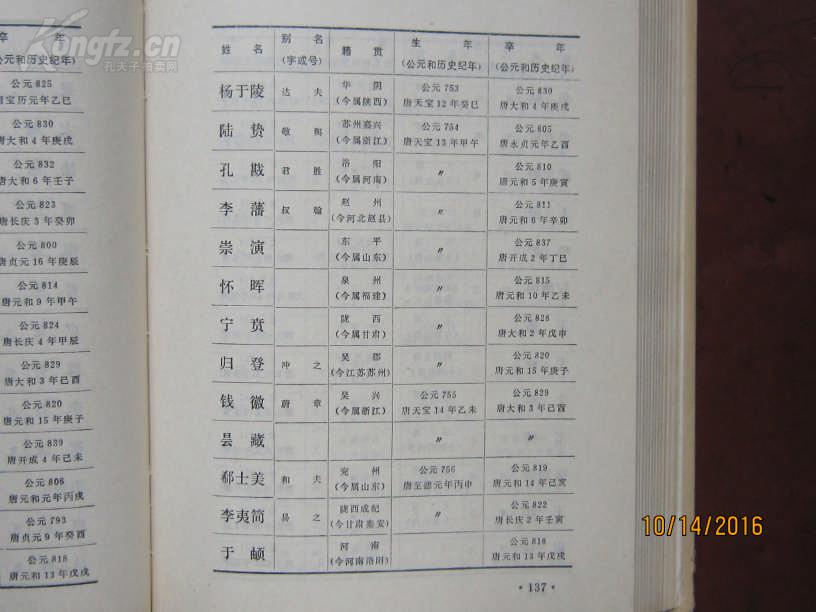 Kongfz.cn
孔夫子拍卖网
卒 年
(公元和历史纪年)
公元 825
唐宝历元年乙巳
公元 830
唐大和 4 年庚戌
公元 832
唐大和 6 年壬子
公元 823
唐长庆 3 年癸卯
公元 800
唐贞元 16 年庚辰
公元 814
唐元和 9 年甲午
公元 824
唐长庆 4 年甲辰
公元 829
唐大和 3 年己酉
公元 820
唐元和 15 年庚子
公元 839
唐开成 4 年己未
公元 806
唐元和元年丙戌
公元 793
唐贞元 9 年癸酉
公元 818
唐元和 13 年戊戌
姓 名 别 名 籍 贯 生 年 卒 年
(字或号) (公元和历史纪年) (公元和历史纪年)
杨于陵 达 夫 华 阴 公元 753 公元 830
(今属陕西) 唐天宝 12 年癸巳 唐大和 4 年庚戌
陆 贽 敬 舆 苏州嘉兴 公元 754 公元 805
(今属浙江) 唐天宝 13 年甲午 唐永贞元年乙酉
孔 戡 君 胜 洛 阳 〃 公元 810
(今属河南) 唐元和 5 年庚寅
李 藩 叔 翰 赵 州 〃 公元 811
(今河北赵县) 唐元和 6 年辛卯
崇 演 东 平 〃 公元 837
(今属山东) 唐开成 2 年丁巳
怀 晖 泉 州 〃 公元 815
(今属福建) 唐元和 10 年乙未
宁 贲 陇 西 〃 公元 828
(今属甘肃) 唐大和 2 年戊申
归 登 冲 之 吴 郡 〃 公元 820
(今江苏苏州) 唐元和 15 年庚子
钱 徽 蔚 章 吴 兴 公元 755 公元 829
(今属浙江) 唐天宝 14 年乙未 唐大和 3 年己酉
昙 藏 〃 〃
郗士美 和 夫 兖 州 公元 756 公元 819
(今属山东) 唐至德元年丙申 唐元和 14 年己亥
李夷简 易 之 陇西成纪 〃 公元 822
(今甘肃秦安) 唐长庆 2 年壬寅
于 頔 河 南 公元 818
(今河南洛阳) 唐元和 13 年戊戌
· 137 ·
10/14/2016